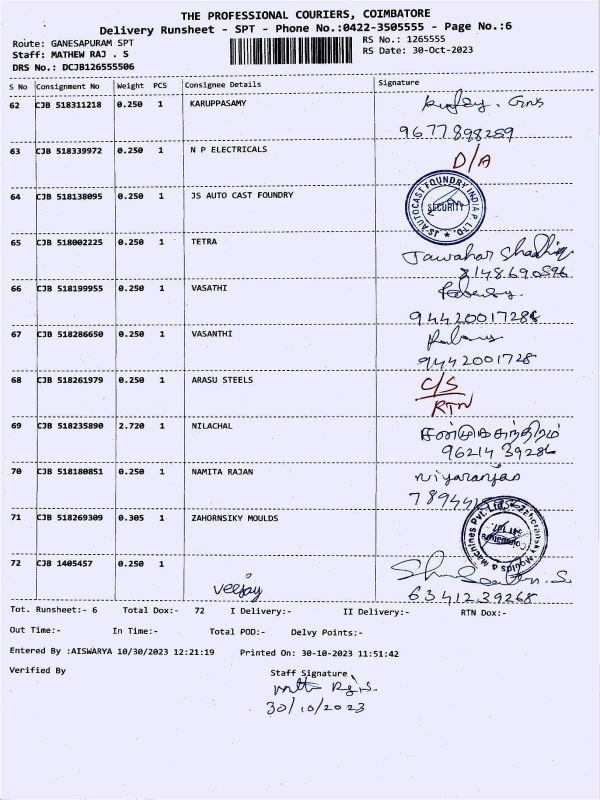 THE PROFESSIONAL COURIERS, COIMBATORE
Delivery Runsheet - SPT - Phone No.:0422-3505555 - Page No.:6
Route: GANESAPURAM SPT
RS No.: 1265555
Staff: MATHEW RAJ . S
RS Date: 30-Oct-2023
DRS No.: DCJB126555506
S No Consignment No Weight PCS Consignee Details Signature
62 CJB 518311218 0.250 1 KARUPPASAMY
9677898289
63 CJB 518339972 0.250 1 N P ELECTRICALS D/A
64 CJB 518138095 0.250 1 JS AUTO CAST FOUNDRY
JS AUTOCAST FOUNDRY INDIA P. LTD. SECURITY
65 CJB 518002225 0.250 1 TETRA
Jawahar
8148690596
66 CJB 518199955 0.250 1 VASATHI
67 CJB 518286650 0.250 1 VASANTHI
9442001728
68 CJB 518261979 0.250 1 ARASU STEELS C/S
RTN
69 CJB 518235890 2.720 1 NILACHAL சண்முகசுந்திரம்
96214 39286
70 CJB 518180851 0.250 1 NAMITA RAJAN
71 CJB 518269309 0.305 1 ZAHORNSIKY MOULDS
Zahoransky Moulds & Machines Pvt. Ltd. Coimbatore
72 CJB 1405457 0.250 1
veejay
6341239268
Tot. Runsheet:- 6 Total Dox:- 72 I Delivery:- II Delivery:- RTN Dox:-
Out Time:- In Time:- Total POD:- Delvy Points:-
Entered By :AISWARYA 10/30/2023 12:21:19 Printed On: 30-10-2023 11:51:42
Verified By Staff Signature
30/10/2023